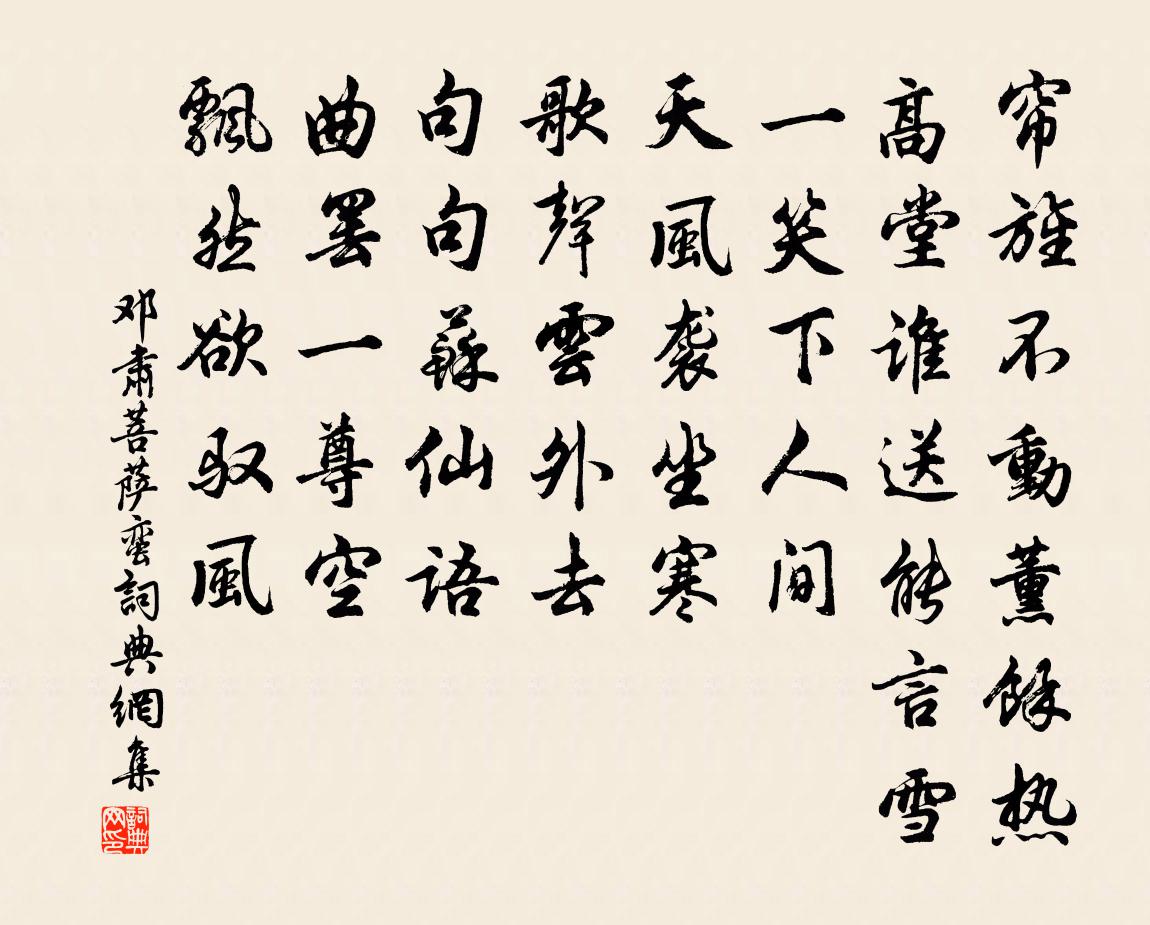 帘旌不動薰餘热
高堂谁送能言雪
一笑下人间
天風袭坐寒
歌聲雲外去
句句蘇仙语
曲罢一尊空
飘然欲驭風
邓肃菩萨蛮詞典網集
詞典网印